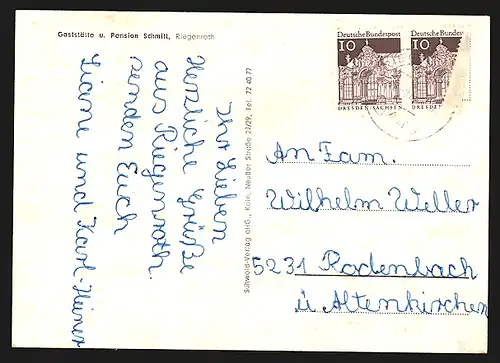 Gaststätte u. Pension Schmitt, Riegenroth
Ihr Lieben
Herzliche Grüße
aus Riegenroth.
senden Euch
Liane und Karl-Heiner
Schwald-Verlag oHG., Köln, Neußer Straße 27/29, Tel. 72 40 77
Deutsche Bundespost
10
DRESDEN-SACHSEN
Deutsche Bundes
10
DRESDE
An Fam.
Wilhelm Weller
5231 Rodenbach
ü Altenkirchen